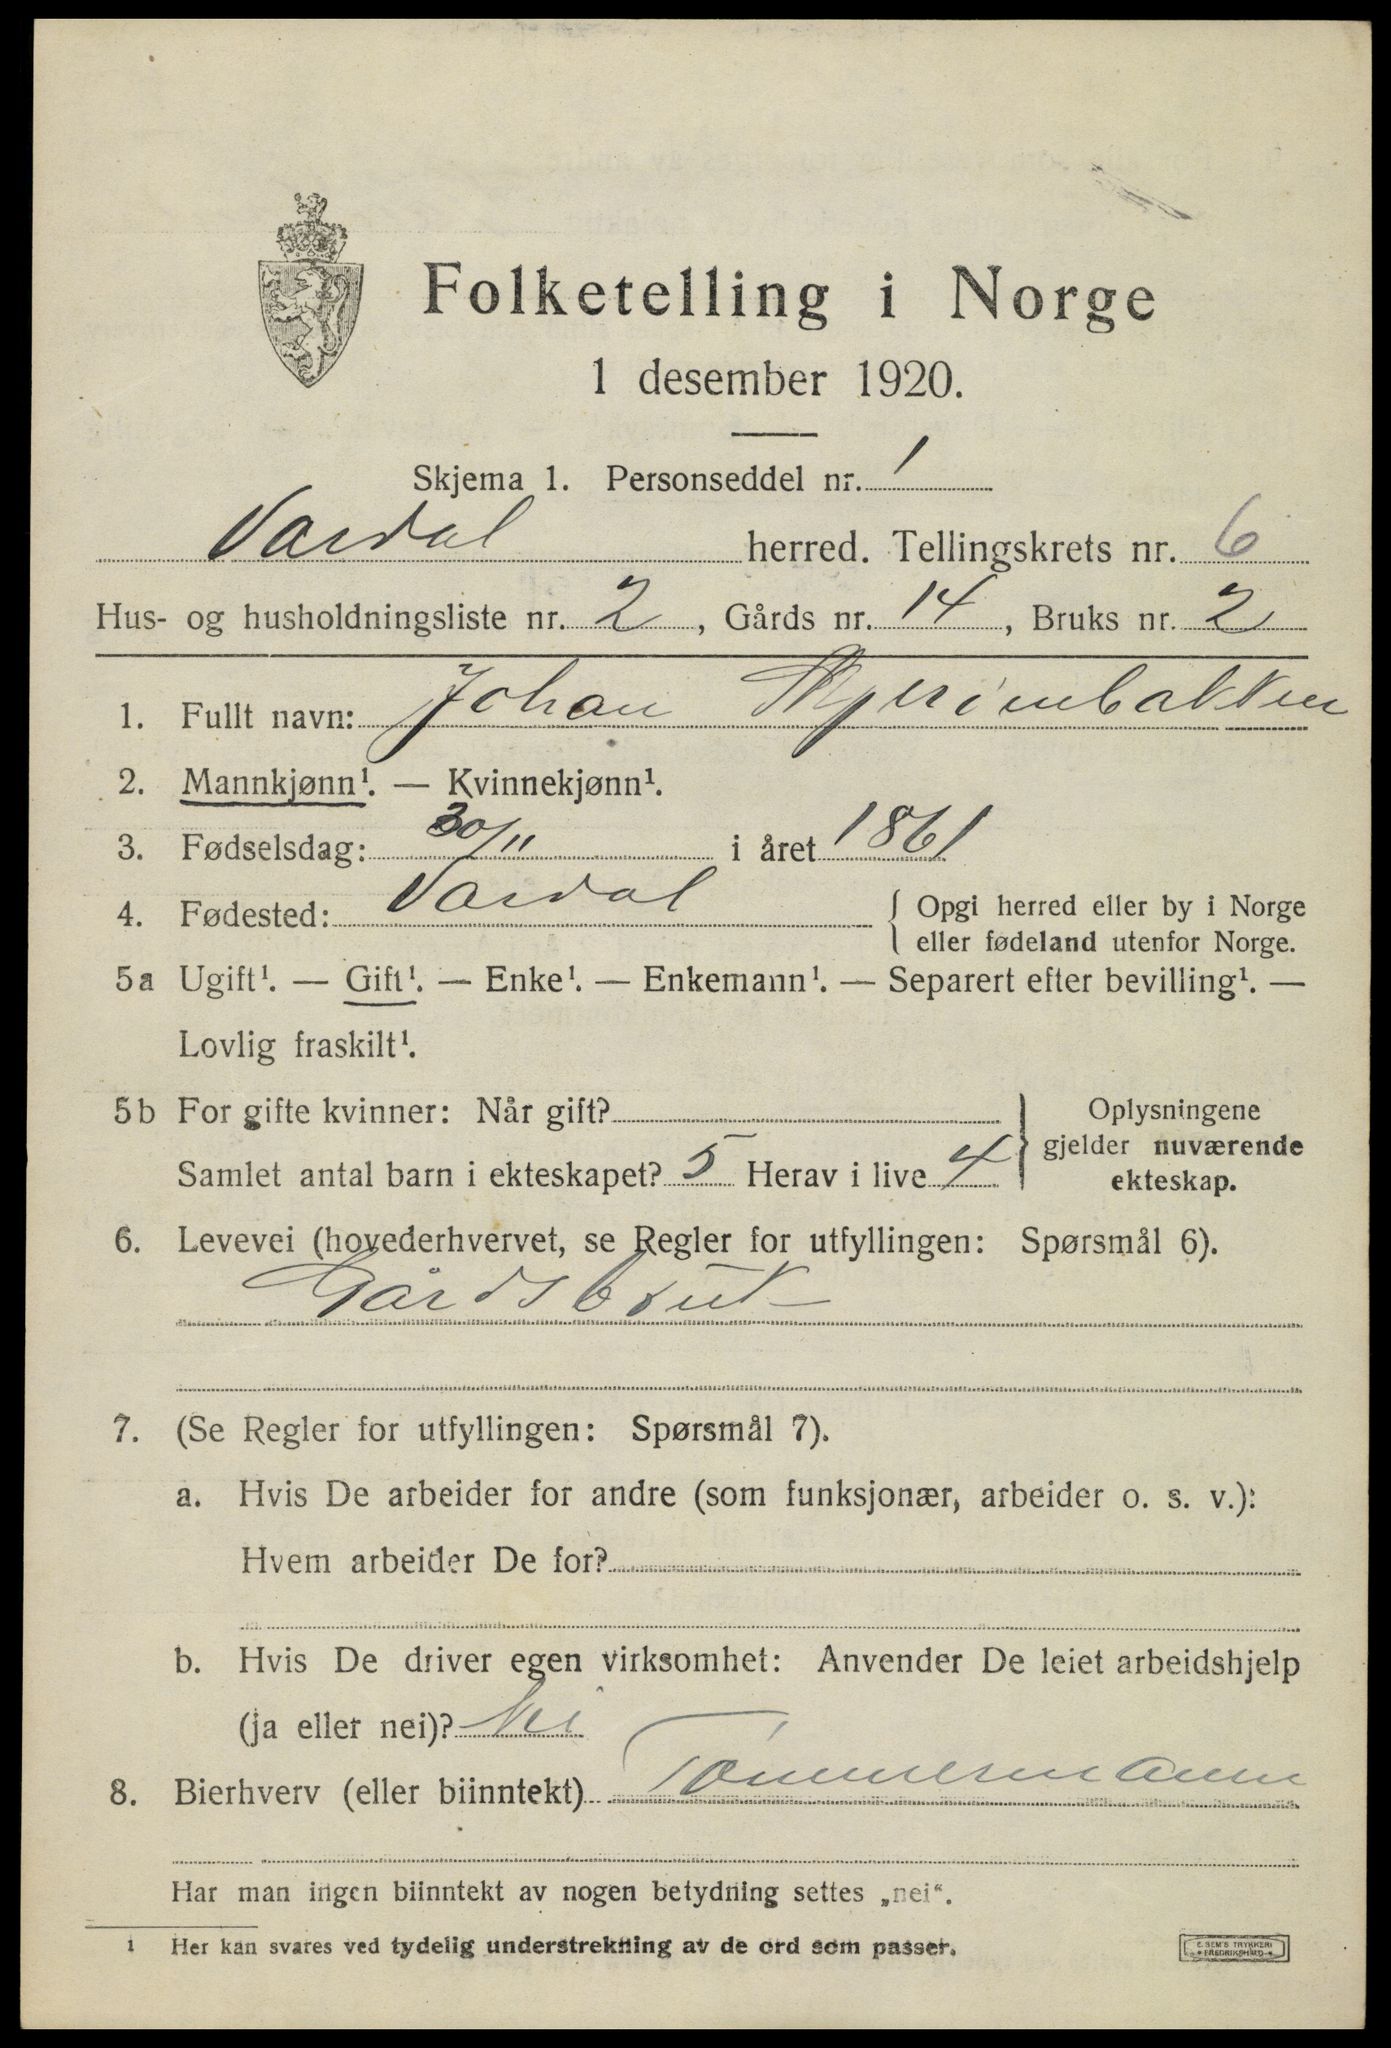 Folketelling i Norge
1 desember 1920.
Skjema 1. Personseddel nr. 1
Vardal herred. Tellingskrets nr. 6
Hus- og husholdningsliste nr. 2, Gårds nr. 14, Bruks nr. 2
1. Fullt navn: Johan
2. Mannkjønn¹. — Kvinnekjønn¹.
3. Fødselsdag: 30/11 i året 1861
4. Fødested: Vardal { Opgi herred eller by i Norge
eller fødeland utenfor Norge.
5a Ugift¹. — Gift¹. — Enke¹. — Enkemann¹. — Separert efter bevilling¹. —
Lovlig fraskilt¹.
5b For gifte kvinner: Når gift?
Samlet antal barn i ekteskapet? 5 Herav i live 4
} Oplysningene
gjelder nuværende
ekteskap.
6. Levevei (hovederhvervet, se Regler for utfyllingen: Spørsmål 6).
Gårdsbruk
7. (Se Regler for utfyllingen: Spørsmål 7).
a. Hvis De arbeider for andre (som funksjonær, arbeider o. s. v.):
Hvem arbeider De for?
b. Hvis De driver egen virksomhet: Anvender De leiet arbeidshjelp
(ja eller nei)? Nei
8. Bierhverv (eller biinntekt) Tømmermann
Har man ingen biinntekt av nogen betydning settes „nei“.
1 Her kan svares ved tydelig understrekning av de ord som passer.
E. SEM'S TRYKKERI
FREDRIKSHALD